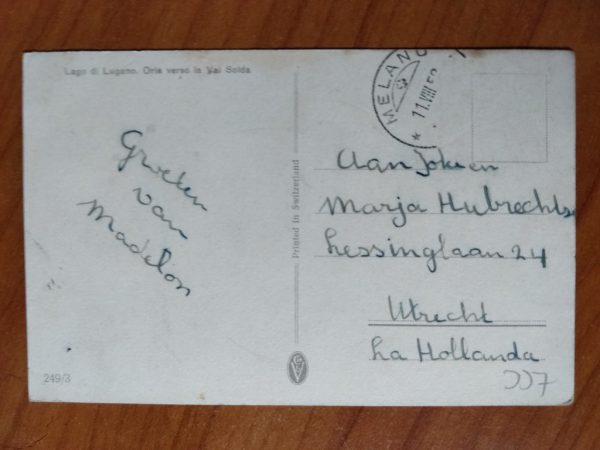 Lago di Lugano. Oria verso la Val Solda
Groeten
van
Madelon
Printed in Switzerland
249/3
MELANO
11.VIII.52
Aan Joke en
Marja Hubrechts
Lessinglaan 24
Utrecht
La Hollanda
337